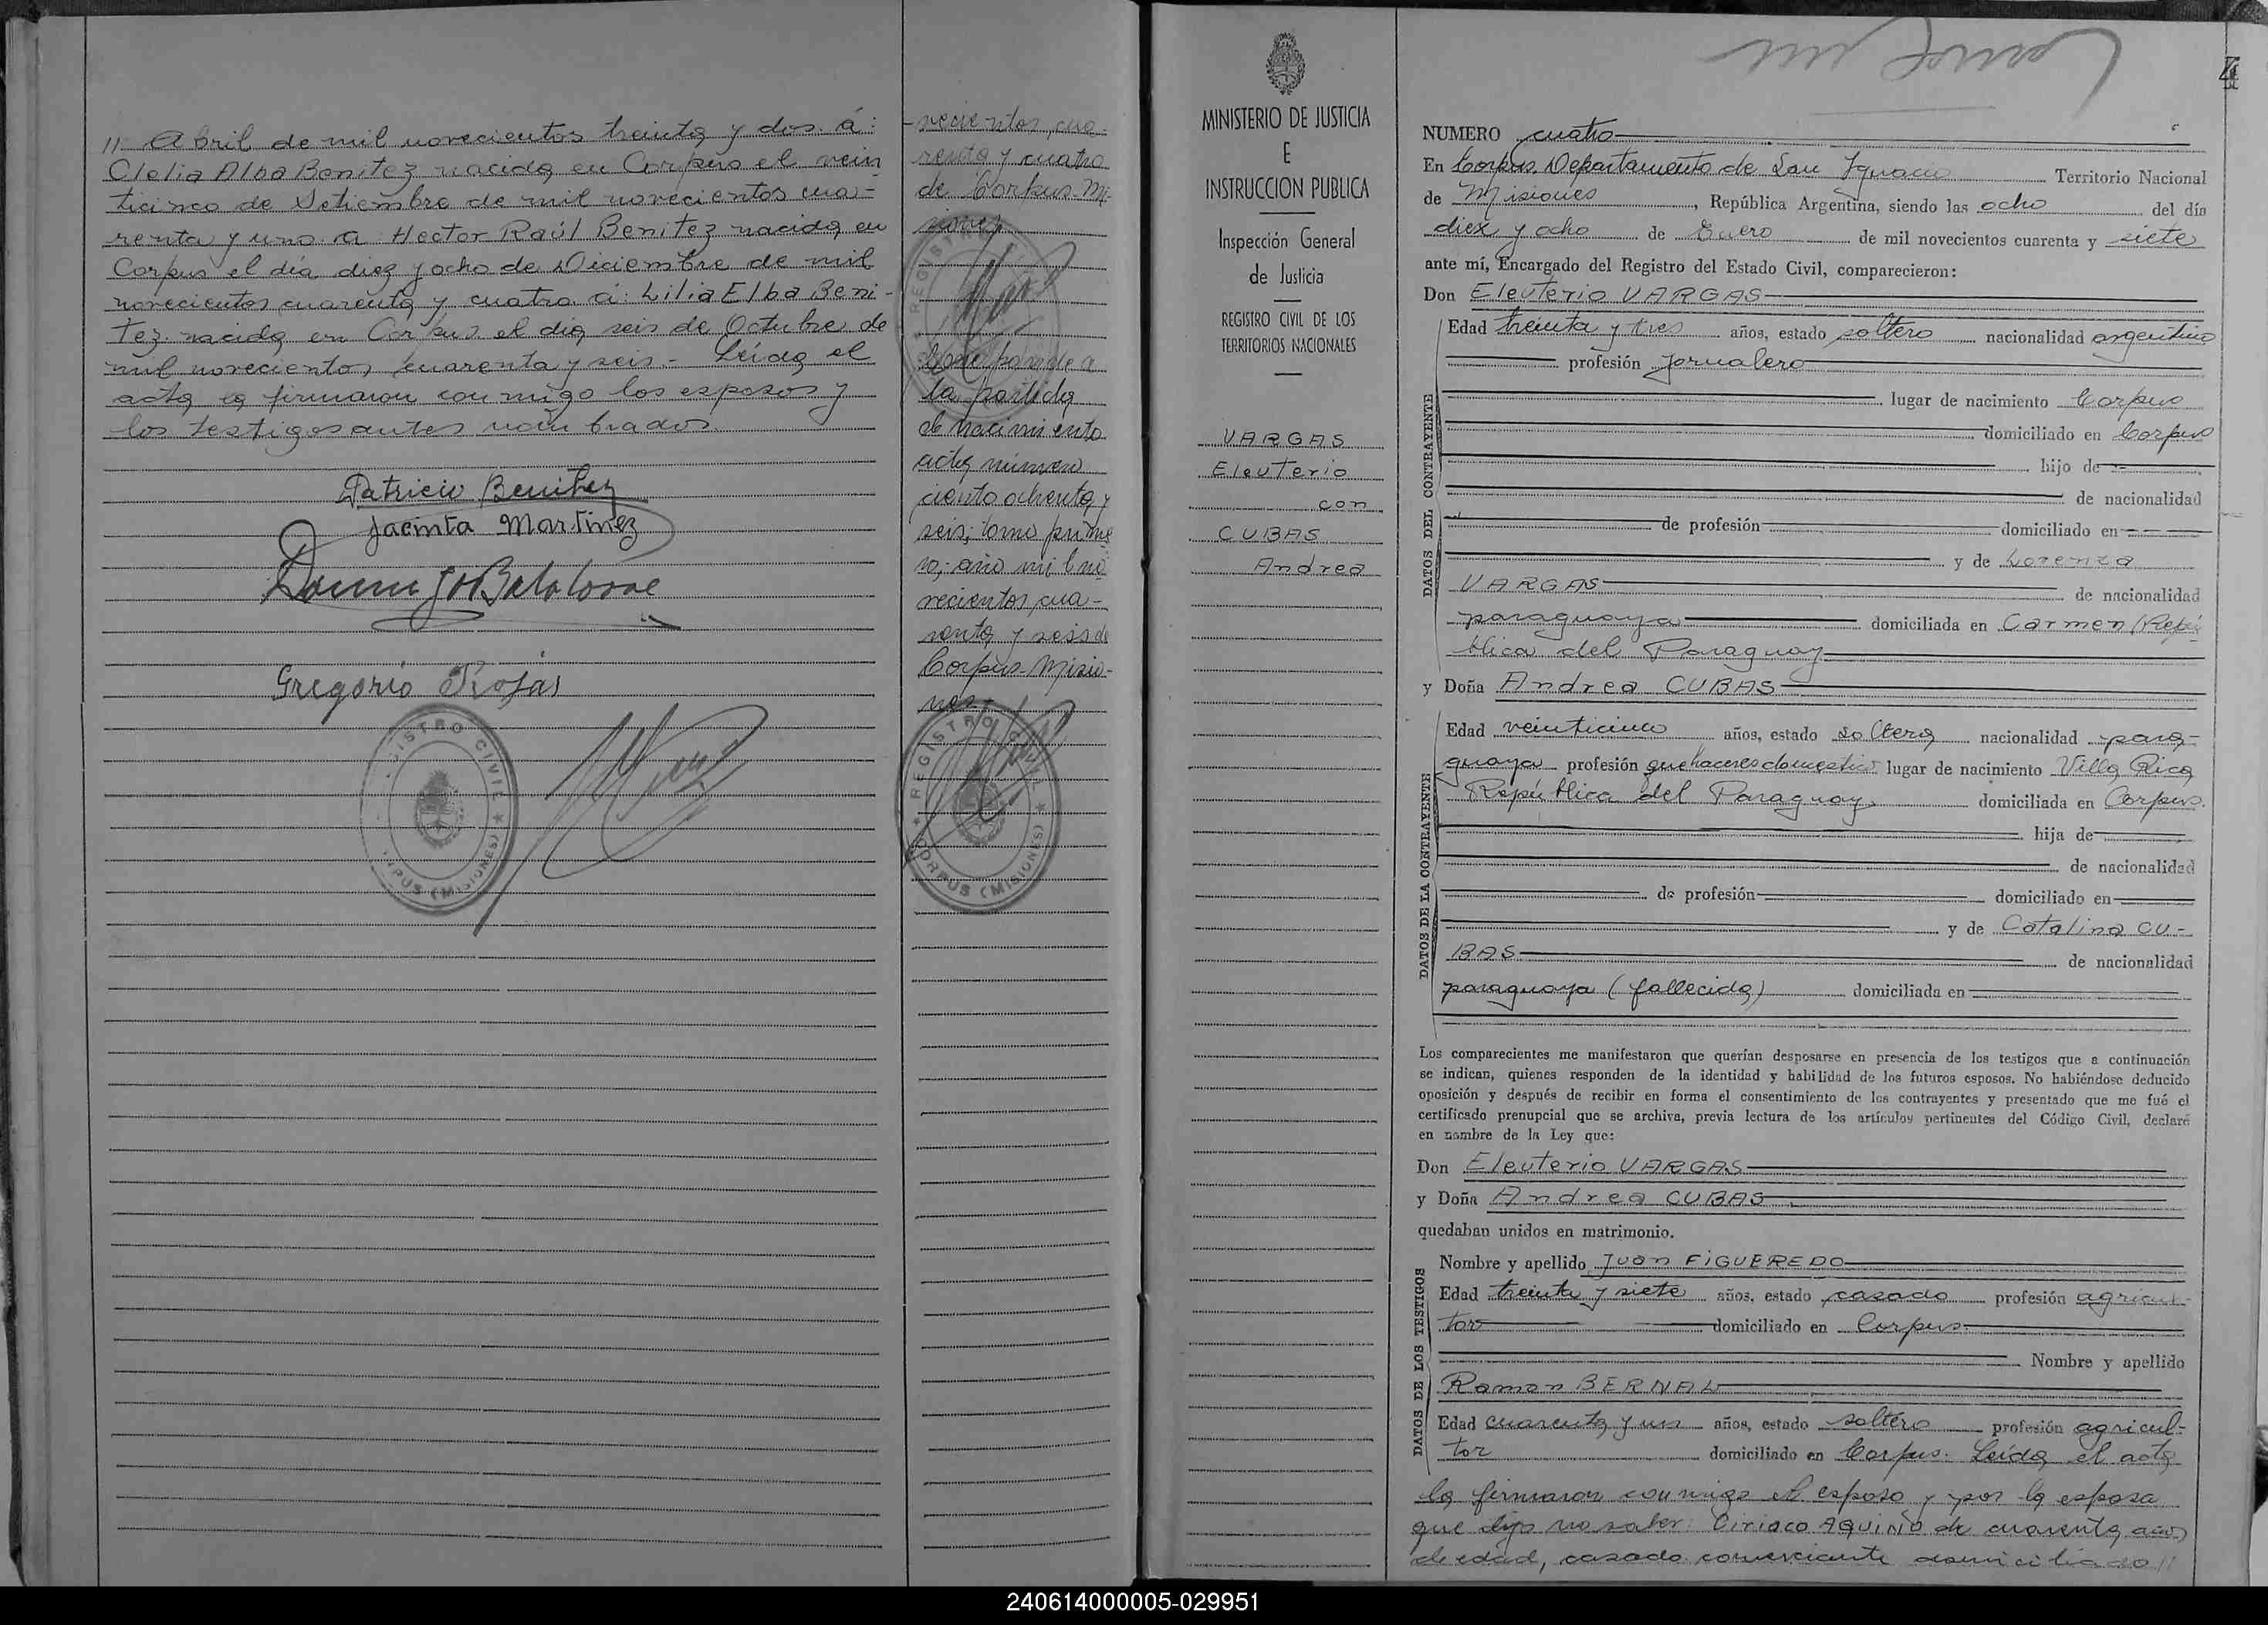 // Abril de mil novecientos treinta y dos. á:
Clelia Alba Benitez nacida en Corpus el vein
ticinco de Setiembre de mil novecientos cua-
renta y uno a Hector Raúl Benitez nacido en
Corpus el día diez y ocho de Diciembre de mil
novecientos cuarenta y cuatro á: Lilia Elba Beni-
tez nacida en Corpus el dia seis de Octubre de
mil novecientos cuarenta y seis - Leida el
acta la firmaron conmigo los esposos y
los testigos antes nombrados
Patricio Benitez
Jacinta Martinez
Gregorio Rojas
REGISTRO CIVIL
CORPUS (MISIONES)
-vecientos cua-
renta y cuatro
de Corpus-Mi-
siones
Corresponde a
la partida
de nacimiento
acta número
ciento ochenta y
seis; tomo prime
ro; año mil no
vecientos cua-
renta y seis de
Corpus-Misio-
nes-
REGISTRO CIVIL
CORPUS (MISIONES)
MINISTERIO DE JUSTICIA
E
INSTRUCCION PUBLICA
Inspección General
de Justicia
REGISTRO CIVIL DE LOS
TERRITORIOS NACIONALES
VARGAS
Eleuterio
con
CUBAS
Andrea
4
NUMERO cuatro
En Corpus, Departamento de San Ignacio Territorio Nacional
de Misiones, República Argentina, siendo las ocho del día
diez y ocho de Enero de mil novecientos cuarenta y siete
ante mí, Encargado del Registro del Estado Civil, comparecieron:
Don Eleuterio VARGAS
DATOS DEL CONTRAYENTE
Edad treinta y tres años, estado soltero nacionalidad argentino
profesión Jornalero
lugar de nacimiento Corpus
domiciliado en Corpus
hijo de
de nacionalidad
de profesión domiciliado en
y de Lorenza
VARGAS de nacionalidad
paraguaya domiciliada en Carmen (Repú
blica del Paraguay
y Doña Andrea CUBAS
DATOS DE LA CONTRAYENTE
Edad veinticinco años, estado soltera nacionalidad para-
guaya profesión quehaceres domestico lugar de nacimiento Villa Rica
República del Paraguay domiciliada en Corpus.
hija de
de nacionalidad
de profesión domiciliado en
y de Catalina CU-
BAS de nacionalidad
paraguaya (fallecida) domiciliada en
Los comparecientes me manifestaron que querían desposarse en presencia de los testigos que a continuación
se indican, quienes responden de la identidad y habilidad de los futuros esposos. No habiéndose deducido
oposición y después de recibir en forma el consentimiento de los contrayentes y presentado que me fué el
certificado prenupcial que se archiva, previa lectura de los artículos pertinentes del Código Civil, declaré
en nombre de la Ley que:
Don Eleuterio VARGAS
y Doña Andrea CUBAS
quedaban unidos en matrimonio.
DATOS DE LOS TESTIGOS
Nombre y apellido Juan FIGUEREDO
Edad treinta y siete años, estado casado profesión agricul-
tor domiciliado en Corpus
Nombre y apellido
Ramon BERNAL
Edad cuarenta y un años, estado soltero profesión agricul-
tor domiciliado en Corpus. Leida el acta
la firmaron conmigo el esposo y por la esposa
que dijo no saber: Ciriaco AQUINO de cuarenta años
de edad, casado comerciante domiciliado //
240614000005-029951